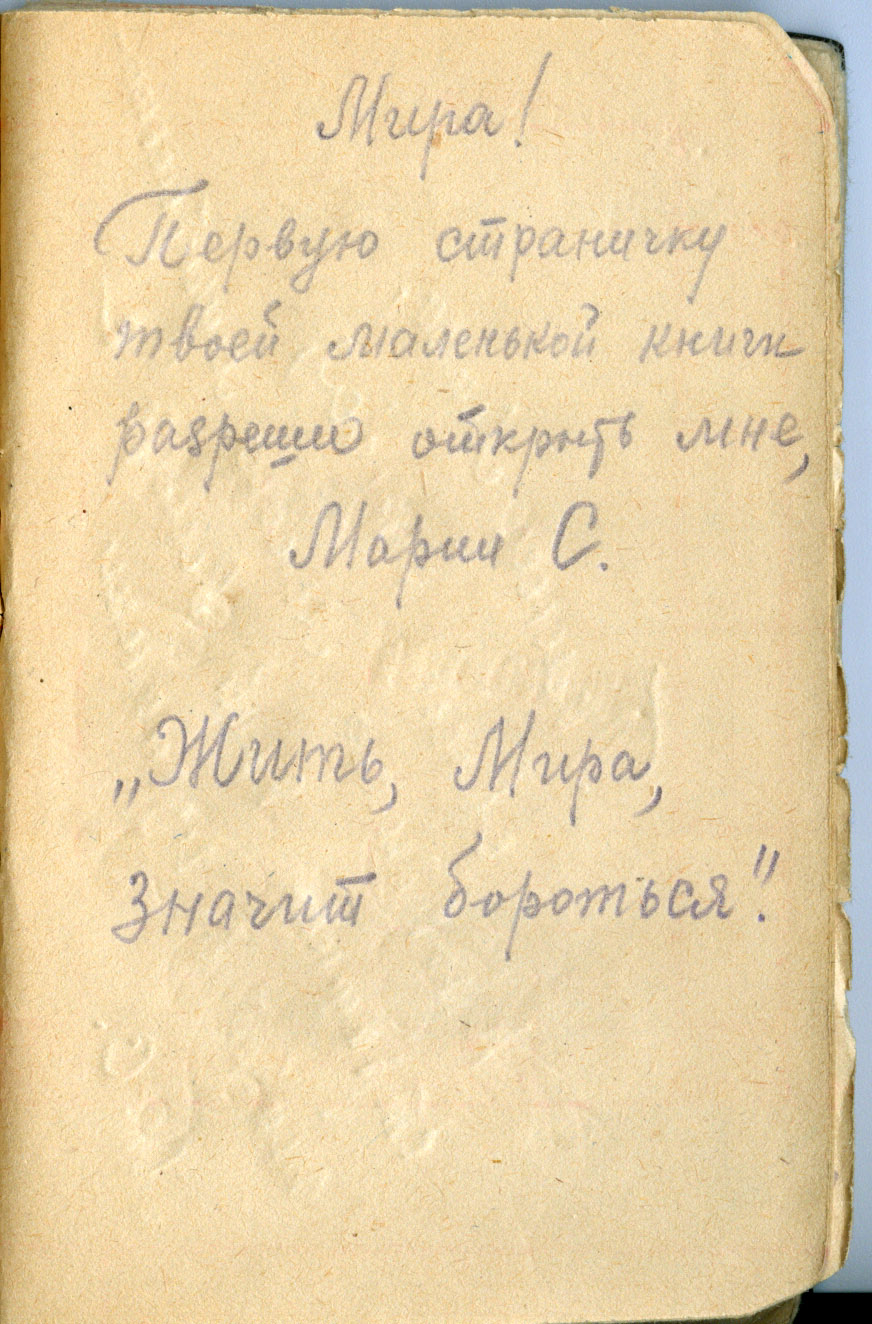 Мира!
Первую страничку
твоей маленькой книги
разреши открыть мне,
Марии С.
„Жить, Мира,
значит бороться".